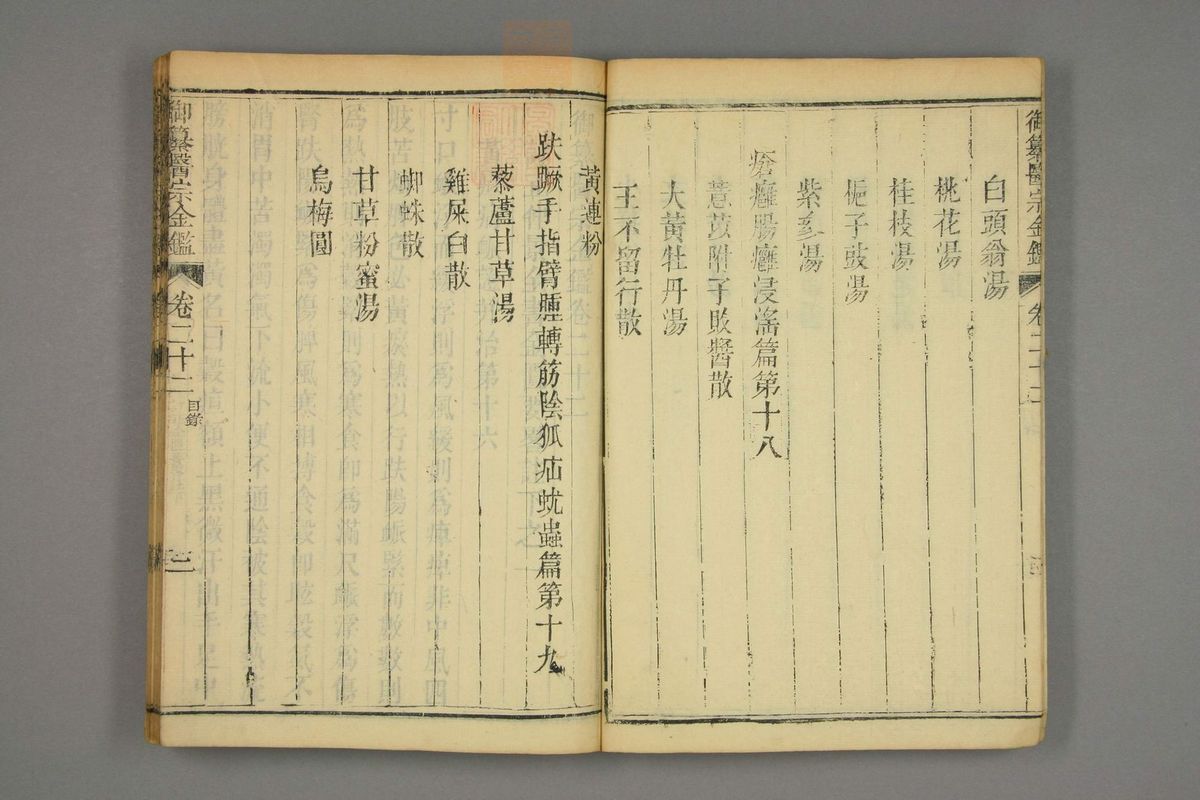 御纂醫宗金鑑
卷二十二
白頭翁湯
桃花湯
桂枝湯
梔子豉湯
紫參湯
瘡癰腸癰浸滛篇第十八
薏苡附子敗醬散
大黃牡丹湯
王不留行散
黃連粉
趺蹶手指臂腫轉筋陰狐疝蚘蟲篇第十九
藜蘆甘草湯
雞屎白散
蜘蛛散
甘草粉蜜湯
烏梅圓
御纂醫宗金鑑
卷二十二
目錄
三